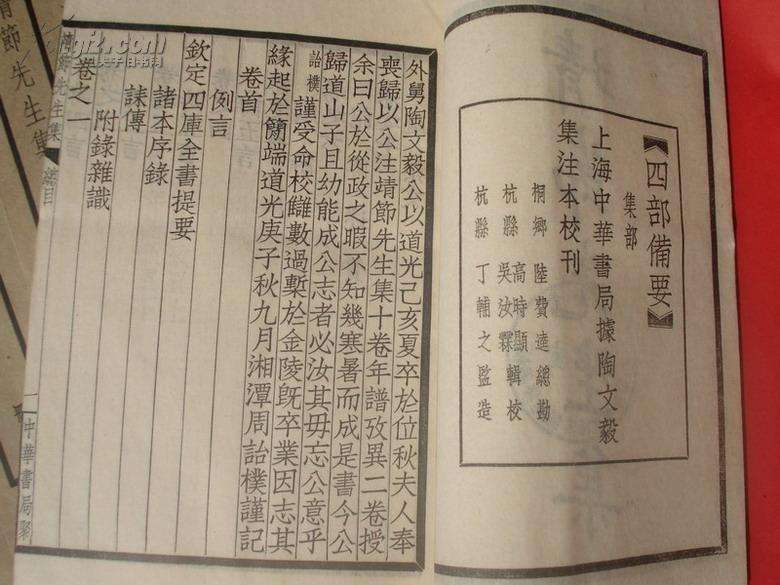 四部備要
集部
上海中華書局據陶文毅
集注本校刊
桐鄉 陸費逵總勘
杭縣 高時顯輯校
杭縣 吳汝霖輯校
杭縣 丁輔之監造
外舅陶文毅公以道光己亥夏卒於位秋夫人奉
喪歸以公注靖節先生集十卷年譜攷異二卷授
余曰公於從政之暇不知幾寒暑而成是書今公
歸道山子且幼能成公志者必汝其毋忘公意乎
詒樸謹受命校讎數過槧於金陵旣卒業因志其
緣起於簡端道光庚子秋九月湘潭周詒樸謹記
卷首
例言
欽定四庫全書提要
諸本序錄
誄傳
附錄雜識
卷之一
靖節先生集
總目
一
中華書局聚
節先生集